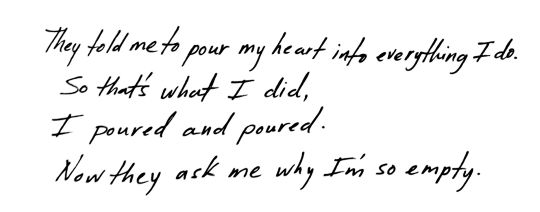 They told me to pour my heart into everything I do.
So that's what I did,
I poured and poured.
Now they ask me why I'm so empty.